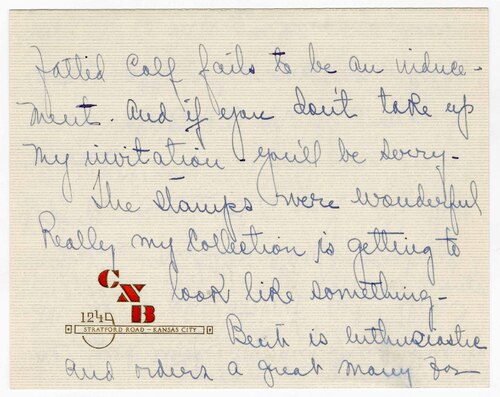 fatted Calf fails to be an induce-
ment. And if you don't take up
my invitation - you'll be sorry -
The Stamps were wonderful
Really my Collection is getting to
look like something -
CNB
1249
STRATFORD ROAD - KANSAS CITY
is enthusiastic
and orders a great many for